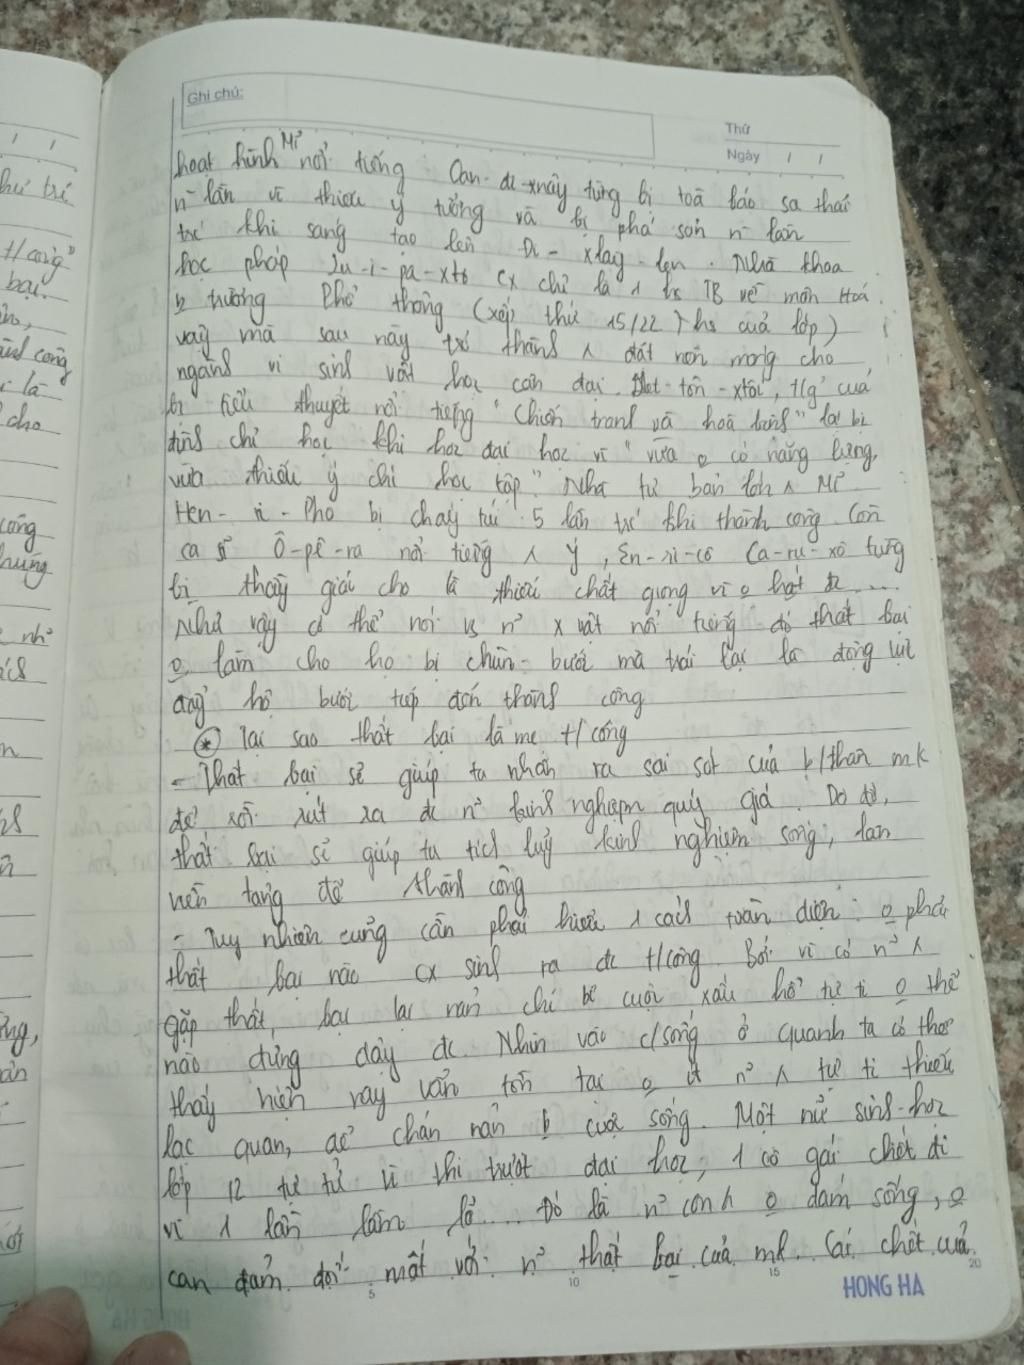 Ghi chú:
Thứ
Ngày / /
hoạt hình Mĩ nổi tiếng Oan-đi-xnây từng bị toà báo sa thải
n² lần vì thiếu ý tưởng và bị phá sản n² lần
trc khi sáng tạo lên Đi-xlây-len. Nhà khoa
học pháp Lu-i-pa-xtơ cx chỉ là 1 hs TB về môn Hoá
trường Phổ thông (xếp thứ 15/22 hs của lớp)
vậy mà sau này trở thành đặt nền móng cho
ngành vi sinh vật học cận đại. Lep-tôn-xtôi, t/g' của
tiểu thuyết nổi tiếng "Chiến tranh và hoà bình" lại bị
đình chỉ học khi học đại học vì "vừa o có năng lượng,
vừa thiếu ý chí học tập". Nhà tư bản lớn Mĩ
Hen-ri-Pho bị cháy túi 5 lần trc khi thành công. Còn
ca sĩ Ô-pê-ra nổi tiếng Ý, En-ri-cô Ca-ru-xô từng
bị thầy giáo cho là thiếu chất giọng vì o hát đc ....
Như vậy có thể nói vs n² x vật nổi tiếng đó thất bại
o làm cho họ bị chùn bước mà trái lại là động lực
đẩy họ bước tiếp đến thành công
* Tại sao thất bại là mẹ t/công
- Thất bại sẽ giúp ta nhận ra sai sót của b/thân mk
để rồi rút ra đc n² kinh nghiệm quý giá. Do đó,
thất bại sẽ giúp ta tích luỹ kinh nghiệm sống, làm
nền tảng để thành công
- Tuy nhiên cũng cần phải hiểu 1 cách toàn diện: o phải
thất bại nào cx sinh ra đc t/công. Bởi vì có n²
gặp thất bại lại nản chí bỏ cuộc xấu hổ tự ti o thể
nào đứng dậy đc. Nhìn vào c/sống ở quanh ta có thể
thấy hiện nay vẫn tồn tại o ít n² tự ti thiếu
lạc quan, dễ chán nản cuộc sống. Một nữ sinh học
lớp 12 tự tử vì thi trượt đại học, 1 cô gái chết đi
vì 1 lần lầm lỡ.... Đó là n² con o dám sống, o
can đảm đối mặt với n² thất bại của mk. Cái chết của
5 10 15 20
HONG HA